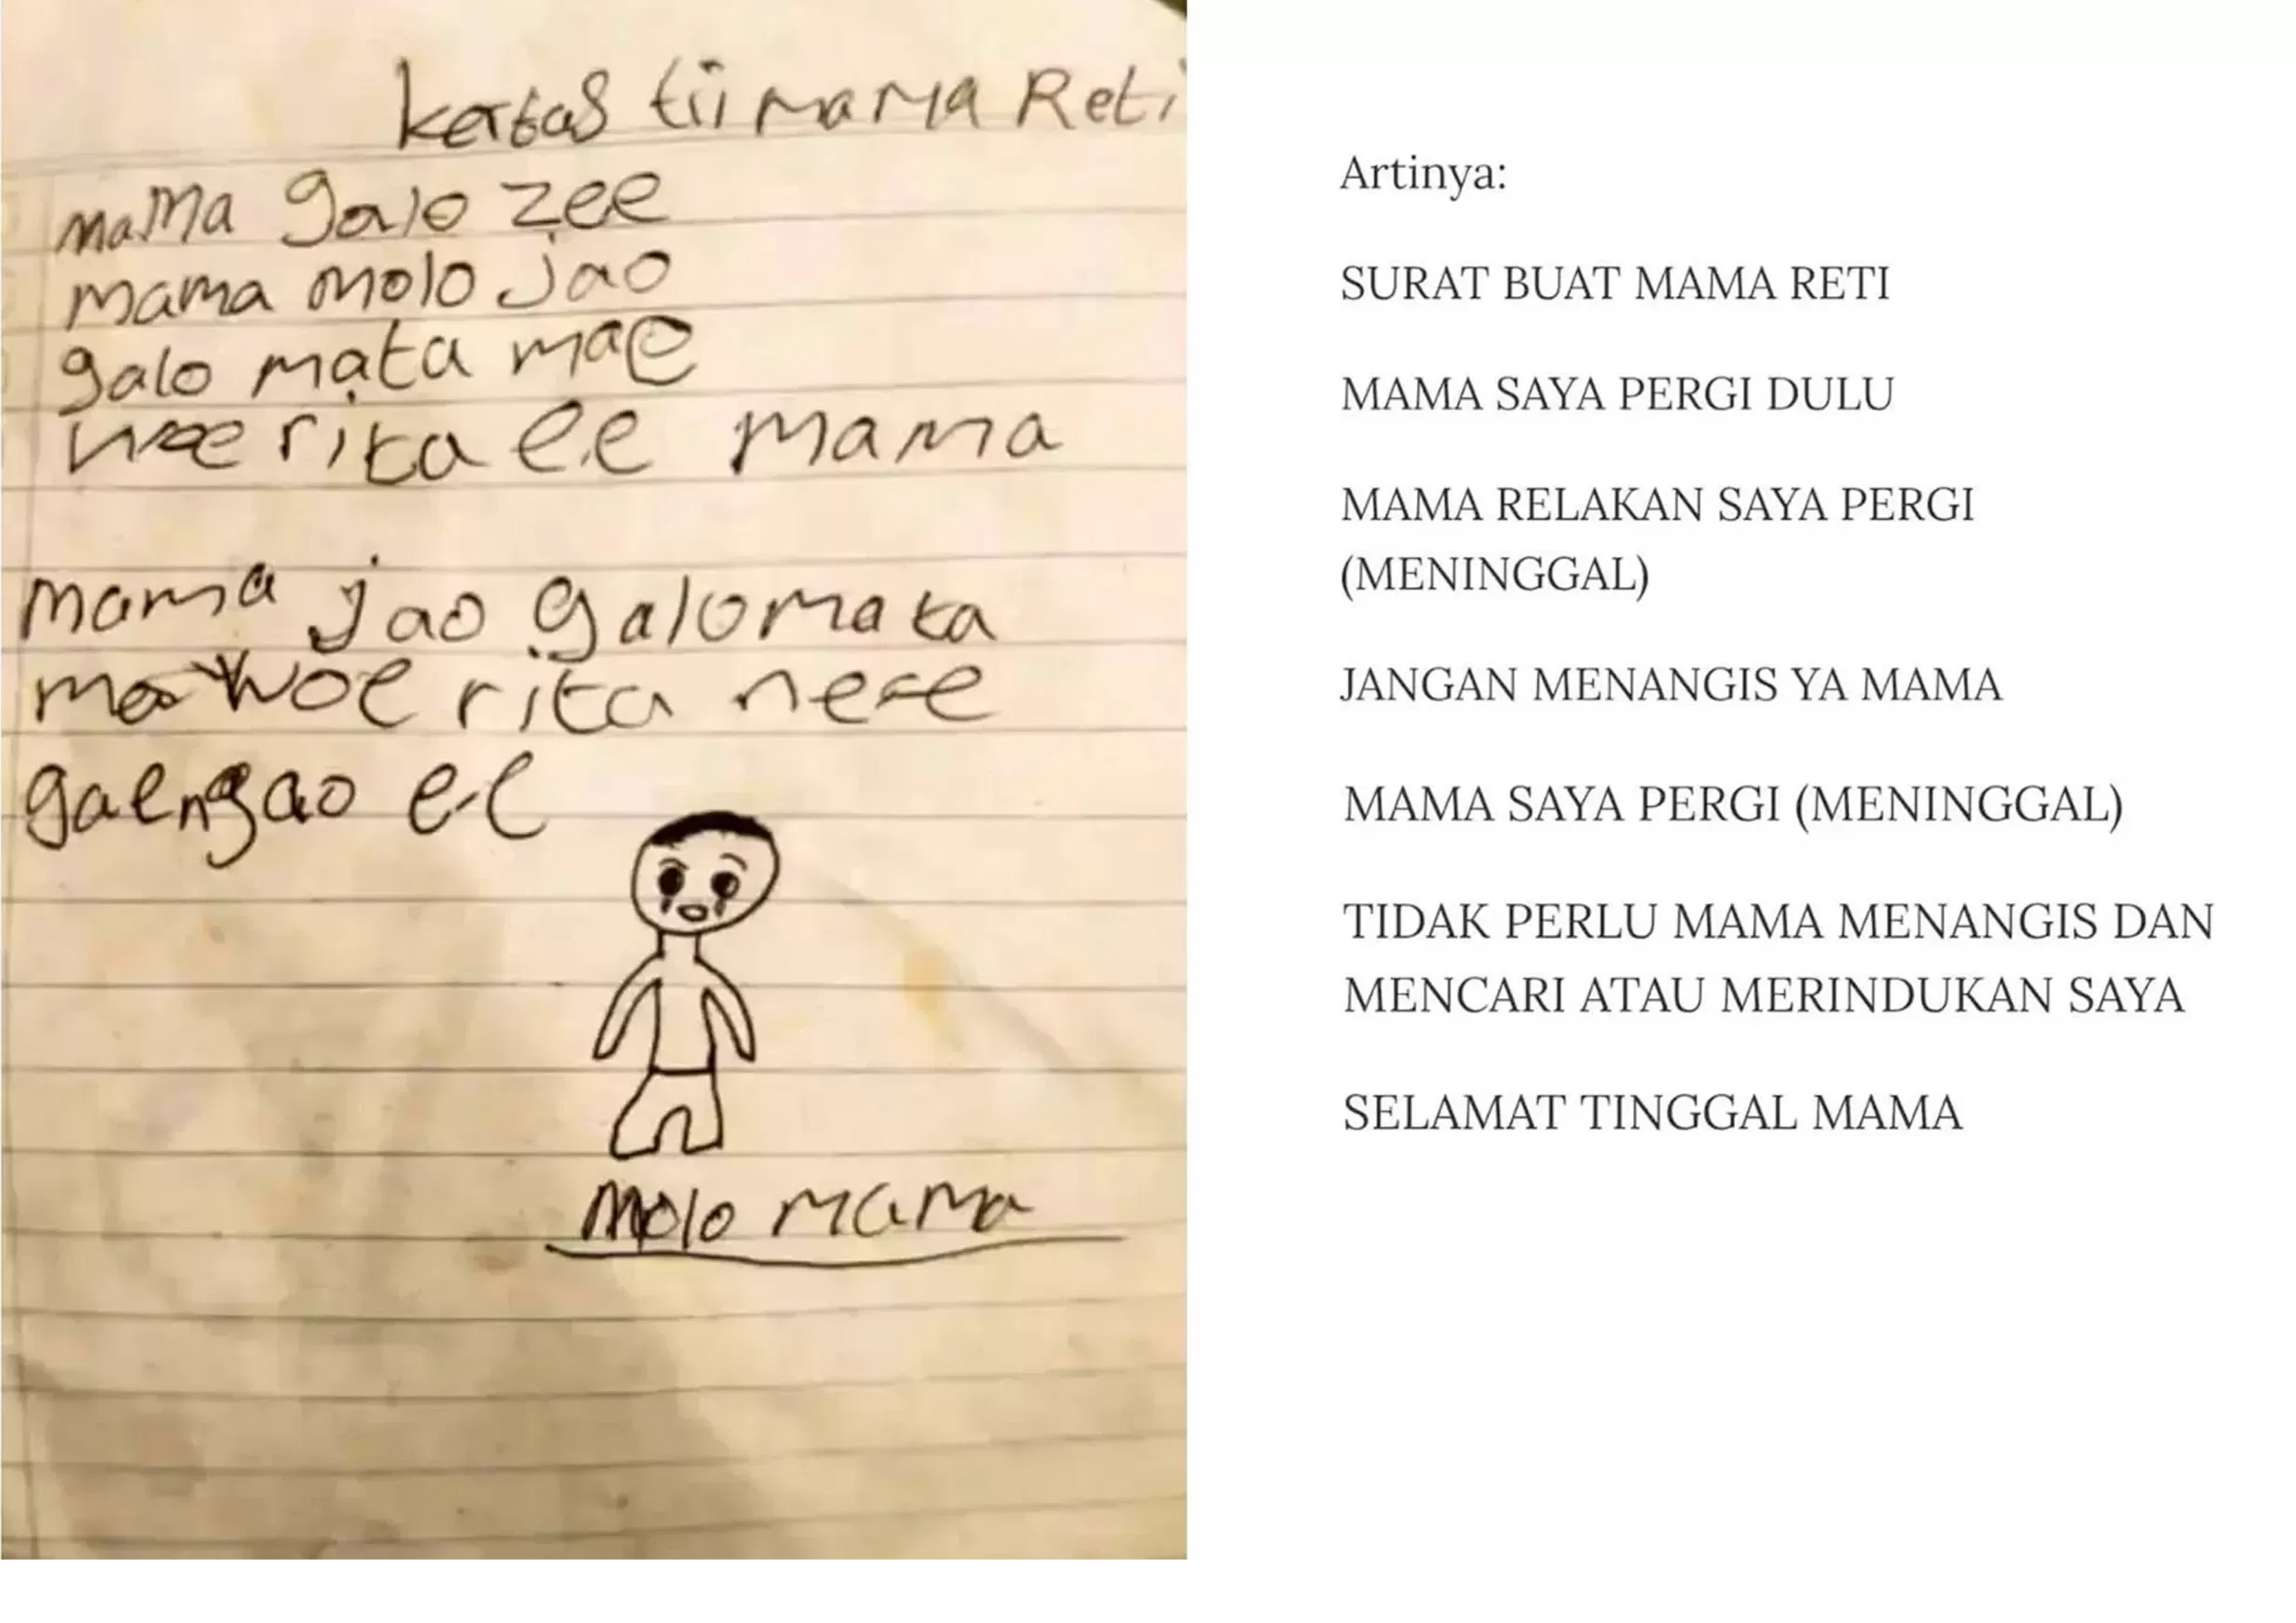 kertas tii mama Reti
mama galo zee
mama molo jao
galo mata mae
woe rita ee mama
mama jao galo mata
mae woe rita ne'e
gae ngao ee
molo mama
Artinya:
SURAT BUAT MAMA RETI
MAMA SAYA PERGI DULU
MAMA RELAKAN SAYA PERGI
(MENINGGAL)
JANGAN MENANGIS YA MAMA
MAMA SAYA PERGI (MENINGGAL)
TIDAK PERLU MAMA MENANGIS DAN
MENCARI ATAU MERINDUKAN SAYA
SELAMAT TINGGAL MAMA